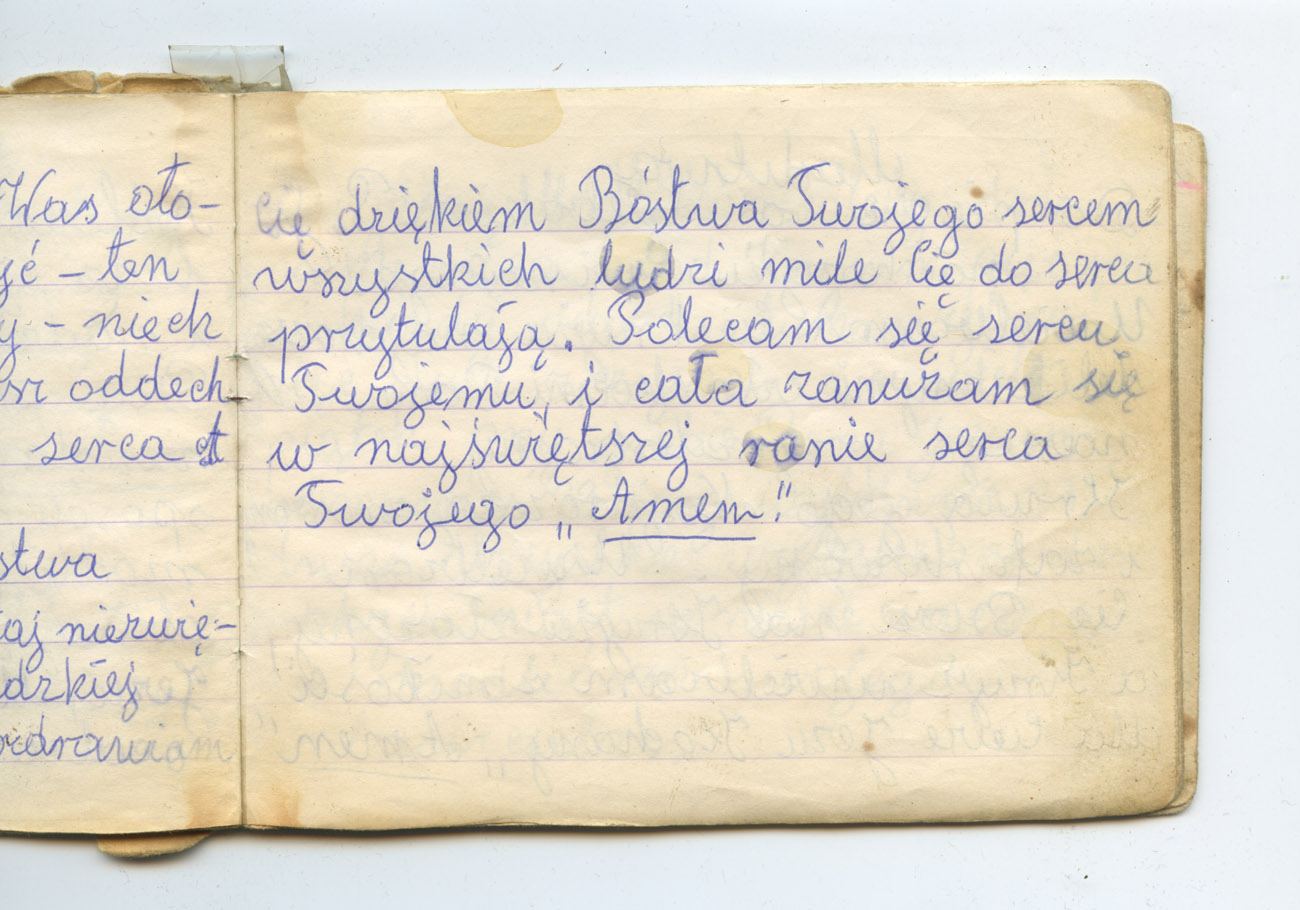 Was oto-
yć – ten
y – niech
oddech
serca
stwa
aj niezwię-
dzkiej
zdrawiam
Cię dziękiem Bóstwa Twojego sercem
wszystkich ludzi mile Cię do serca
przytulają. Polecam się sercu
Twojemu, i cała zanużam się
w najświętszej ranie serca
Twojego „Amem"